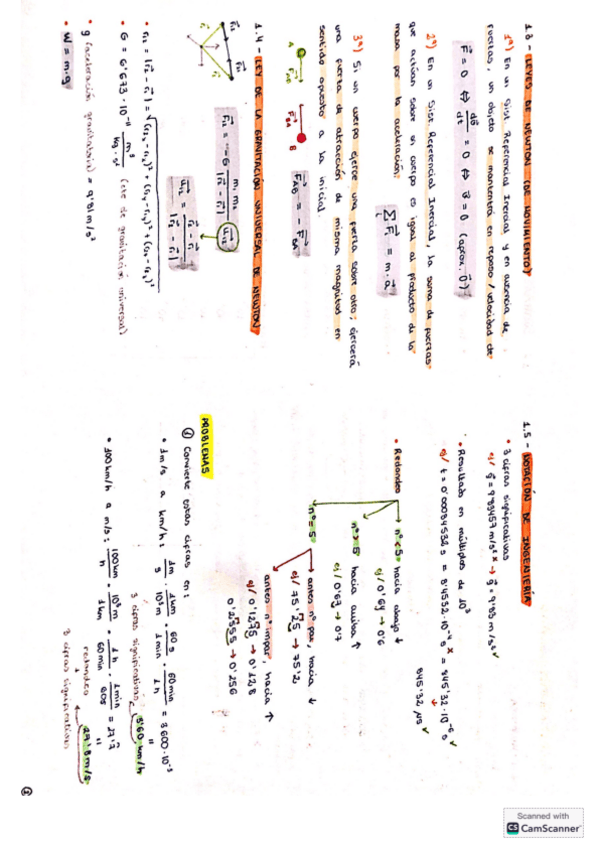 1.3 - LEYES DE NEWTON (DE MOVIMIENTO)
1ª) En un Sist. Referencial Inercial y en ausencia de
fuerzas, un objeto se mantendrá en reposo / velocidad cte
F⃗ = 0 ⇔ dG⃗/dt = 0 ⇔ v⃗ = 0 (aprox. 0⃗)
2ª) En un Sist. Referencial Inercial, la suma de fuerzas
que actúan sobre un cuerpo es igual al producto de la
masa por la aceleración:
∑F⃗ = m·a⃗
3ª) Si un cuerpo ejerce una fuerza sobre otro; ejercerá
una fuerza de atracción de misma magnitud en
sentido opuesto a la inicial.
A F⃗AB F⃗BA B F⃗AB = - F⃗BA
1.4 - LEY DE LA GRAVITACIÓN UNIVERSAL DE NEWTON
W = m·g
g (aceleración gravitatoria) = 9'81 m/s²
G = 6'673 · 10⁻¹¹ m³/kg·s² (cte de gravitación universal)
1.5 - NOTACIÓN DE INGENIERÍA
• 3 cifras significativas
ej/ g = 9'83457 m/s² x → g = 9'83 m/s² ✓
• Resultado en múltiplos de 10³
ej/ t = 0'00084532 s = 8'4532·10⁻⁴ s x = 845'32·10⁻⁶ s ✓
845'32 µs ✓
• Redondeo
nº < 5 hacia abajo ↓
ej/ 0'64 → 0'6
nº > 5 hacia arriba ↑
ej/ 0'67 → 0'7
nº = 5
antes nº par, hacia ↓
ej/ 75'25 → 75'2
antes nº impar, hacia ↑
ej/ 0'1275 → 0'128
0'2555 → 0'256
PROBLEMAS
① Convierte estas cifras en:
• 1 m/s a km/h: 1m/s · 1km/10³m · 60s/1min · 60min/1h = 3600·10⁻³
"
3 cifras significativas 3'60 km/h
• 100 km/h a m/s: 100km/h · 10³m/1km · 1h/60min · 1min/60s = 27'7
"
redondeo 27'8 m/s
3 cifras significativas
①
Scanned with
CS CamScanner